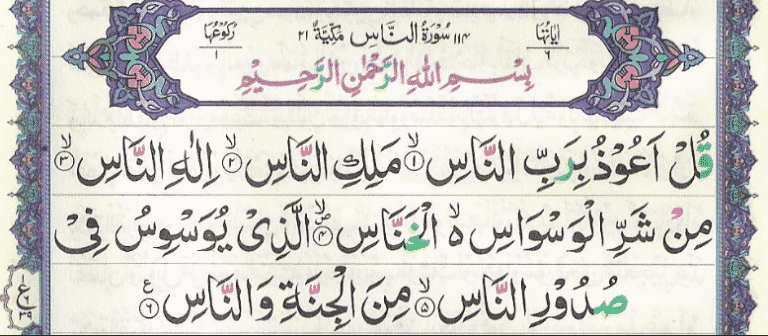 اٰیَاتُهَا ٦ ١١٤ سُوْرَةُ النَّاسِ مَکِّیَّةٌ ٢١ رُکُوْعُهَا ١
بِسْمِ اللّٰهِ الرَّحْمٰنِ الرَّحِیْمِ
قُلْ اَعُوْذُ بِرَبِّ النَّاسِ ۙ﴿١﴾ مَلِكِ النَّاسِ ۙ﴿٢﴾ اِلٰهِ النَّاسِ ۙ﴿٣﴾
مِنْ شَرِّ الْوَسْوَاسِ ۙ۬ الْخَنَّاسِ ﴿٤﴾ الَّذِیْ یُوَسْوِسُ فِیْ
صُدُوْرِ النَّاسِ ۙ﴿٥﴾ مِنَ الْجِنَّةِ وَالنَّاسِ ﴿٦﴾